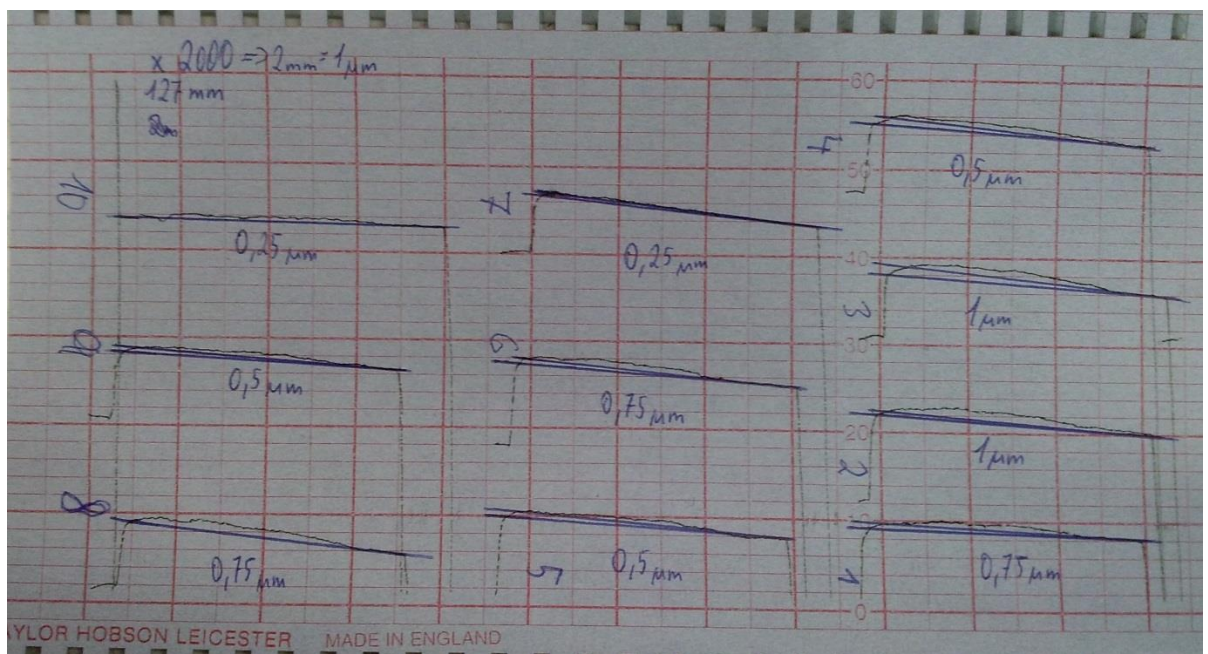 x 2000 => 2mm = 1 µm
127 mm
10
0,25 µm
9
0,5 µm
8
0,75 µm
7
0,25 µm
6
0,75 µm
5
0,5 µm
60
4
50
0,5 µm
40
3
1 µm
30
20
2
1 µm
10
1
0,75 µm
0
AYLOR HOBSON LEICESTER MADE IN ENGLAND